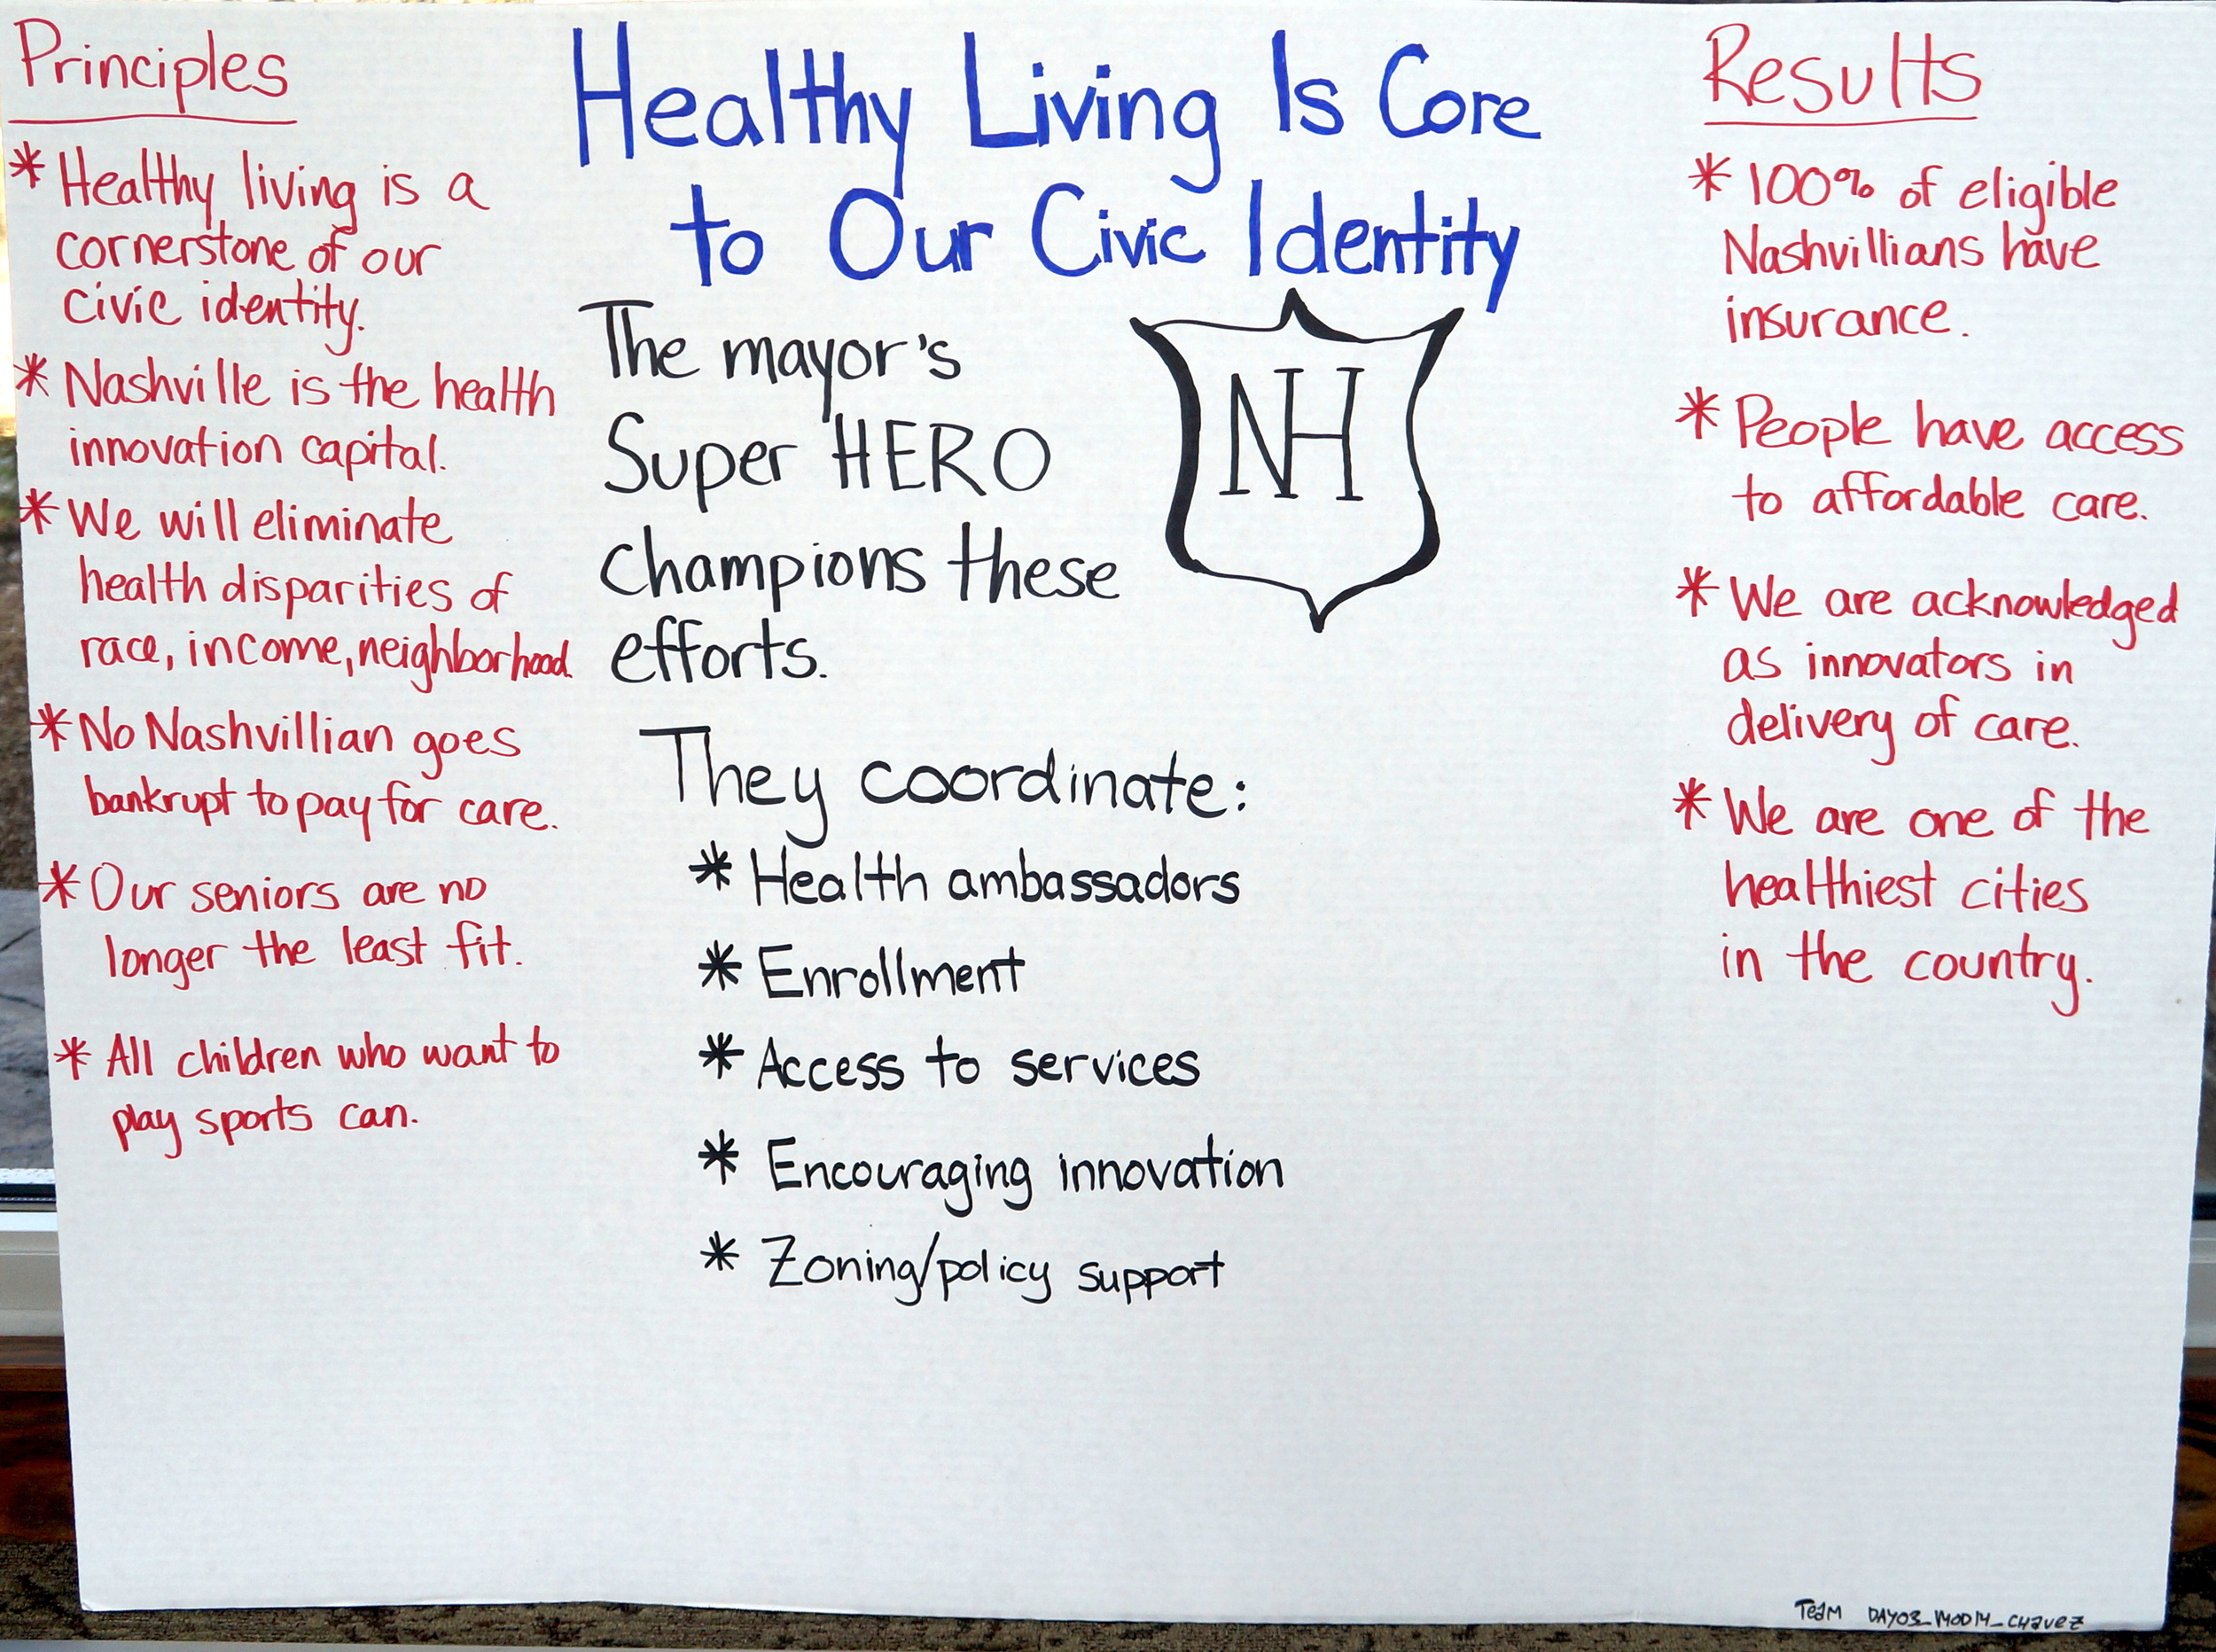 Principles
* Healthy living is a
cornerstone of our
civic identity.
* Nashville is the health
innovation capital.
* We will eliminate
health disparities of
race, income, neighborhood.
* No Nashvillian goes
bankrupt to pay for care.
* Our seniors are no
longer the least fit.
* All children who want to
play sports can.
Healthy Living Is Core
to Our Civic Identity
The mayor's
Super HERO
champions these
efforts.
NH
They coordinate:
* Health ambassadors
* Enrollment
* Access to services
* Encouraging innovation
* Zoning/policy support
Results
* 100% of eligible
Nashvillians have
insurance.
* People have access
to affordable care.
* We are acknowledged
as innovators in
delivery of care.
* We are one of the
healthiest cities
in the country.
Team DAY03_MOD14_Chavez